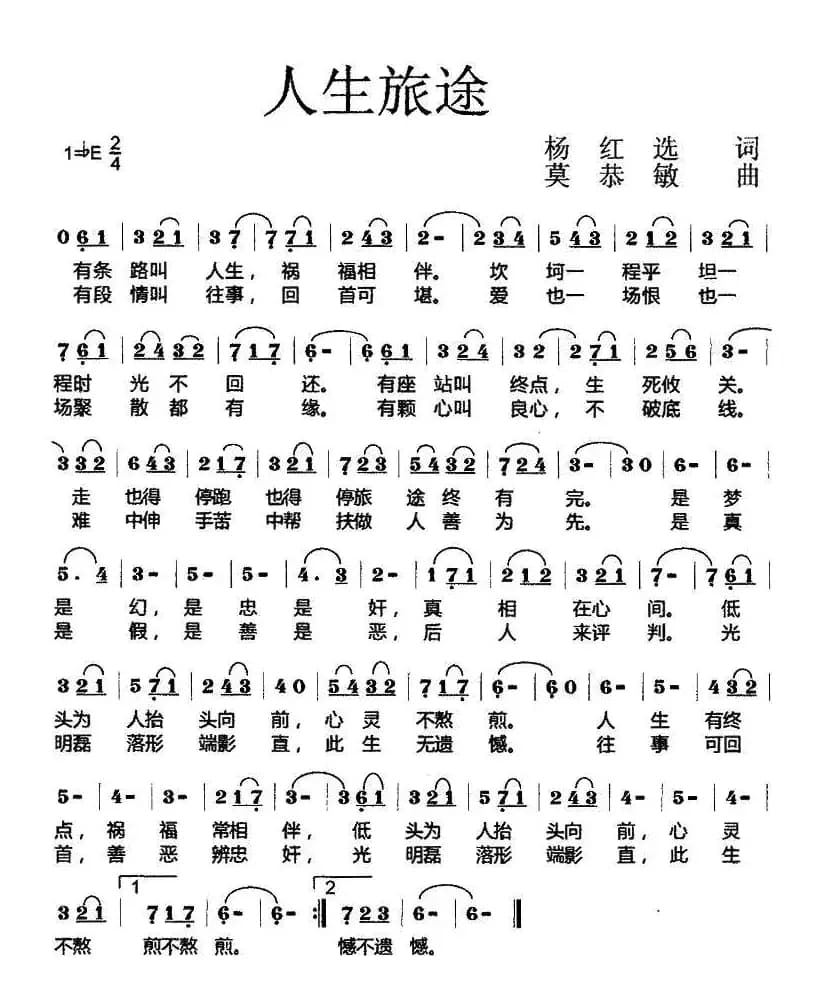 人生旅途
1=♭E 2/4
杨红选 词
莫恭敏 曲
0 6 1 | 3 2 1 | 3 7 | 7 7 1 | 2 4 3 | 2 - | 2 3 4 | 5 4 3 | 2 1 2 | 3 2 1 |
有条 路叫 人生，祸 福相 伴。坎 坷一 程平 坦一
有段 情叫 往事，回 首可 堪。爱 也一 场恨 也一
7 6 1 | 2 4 3 2 | 7 1 7 | 6 - | 6 6 1 | 3 2 4 | 3 2 | 2 7 1 | 2 5 6 | 3 - |
程时 光 不 回 还。有座 站叫 终点，生 死攸 关。
场聚 散 都 有 缘。有颗 心叫 良心，不 破底 线。
3 3 2 | 6 4 3 | 2 1 7 | 3 2 1 | 7 2 3 | 5 4 3 2 | 7 2 4 | 3 - | 3 0 | 6 - | 6 - |
走 也得 停跑 也得 停旅 途 终 有 完。是 梦
难 中伸 手苦 中帮 扶做 人 善 为 先。是 真
5 . 4 | 3 - | 5 - | 5 - | 4 . 3 | 2 - | 1 7 1 | 2 1 2 | 3 2 1 | 7 - | 7 6 1 |
是 幻，是 忠 是 奸，真 相 在心 间。低
是 假，是 善 是 恶，后 人 来评 判。光
3 2 1 | 5 7 1 | 2 4 3 | 4 0 | 5 4 3 2 | 7 1 7 | 6 - | 6 0 | 6 - | 5 - | 4 3 2 |
头为 人抬 头向 前，心 灵 不熬 煎。人 生 有终
明磊 落形 端影 直，此 生 无遗 憾。往 事 可回
5 - | 4 - | 3 - | 2 1 7 | 3 - | 3 6 1 | 3 2 1 | 5 7 1 | 2 4 3 | 5 - | 4 3 2 |
点，祸 福 常相 伴，低 头为 人抬 头向 前，心 灵
首，善 恶 辨忠 奸，光 明磊 落形 端影 直，此 生
1 2
3 2 1 | 7 1 7 | 6 - | 6 - :| 7 2 3 | 6 - | 6 - ‖
不熬 煎不熬 煎。 憾不遗 憾。